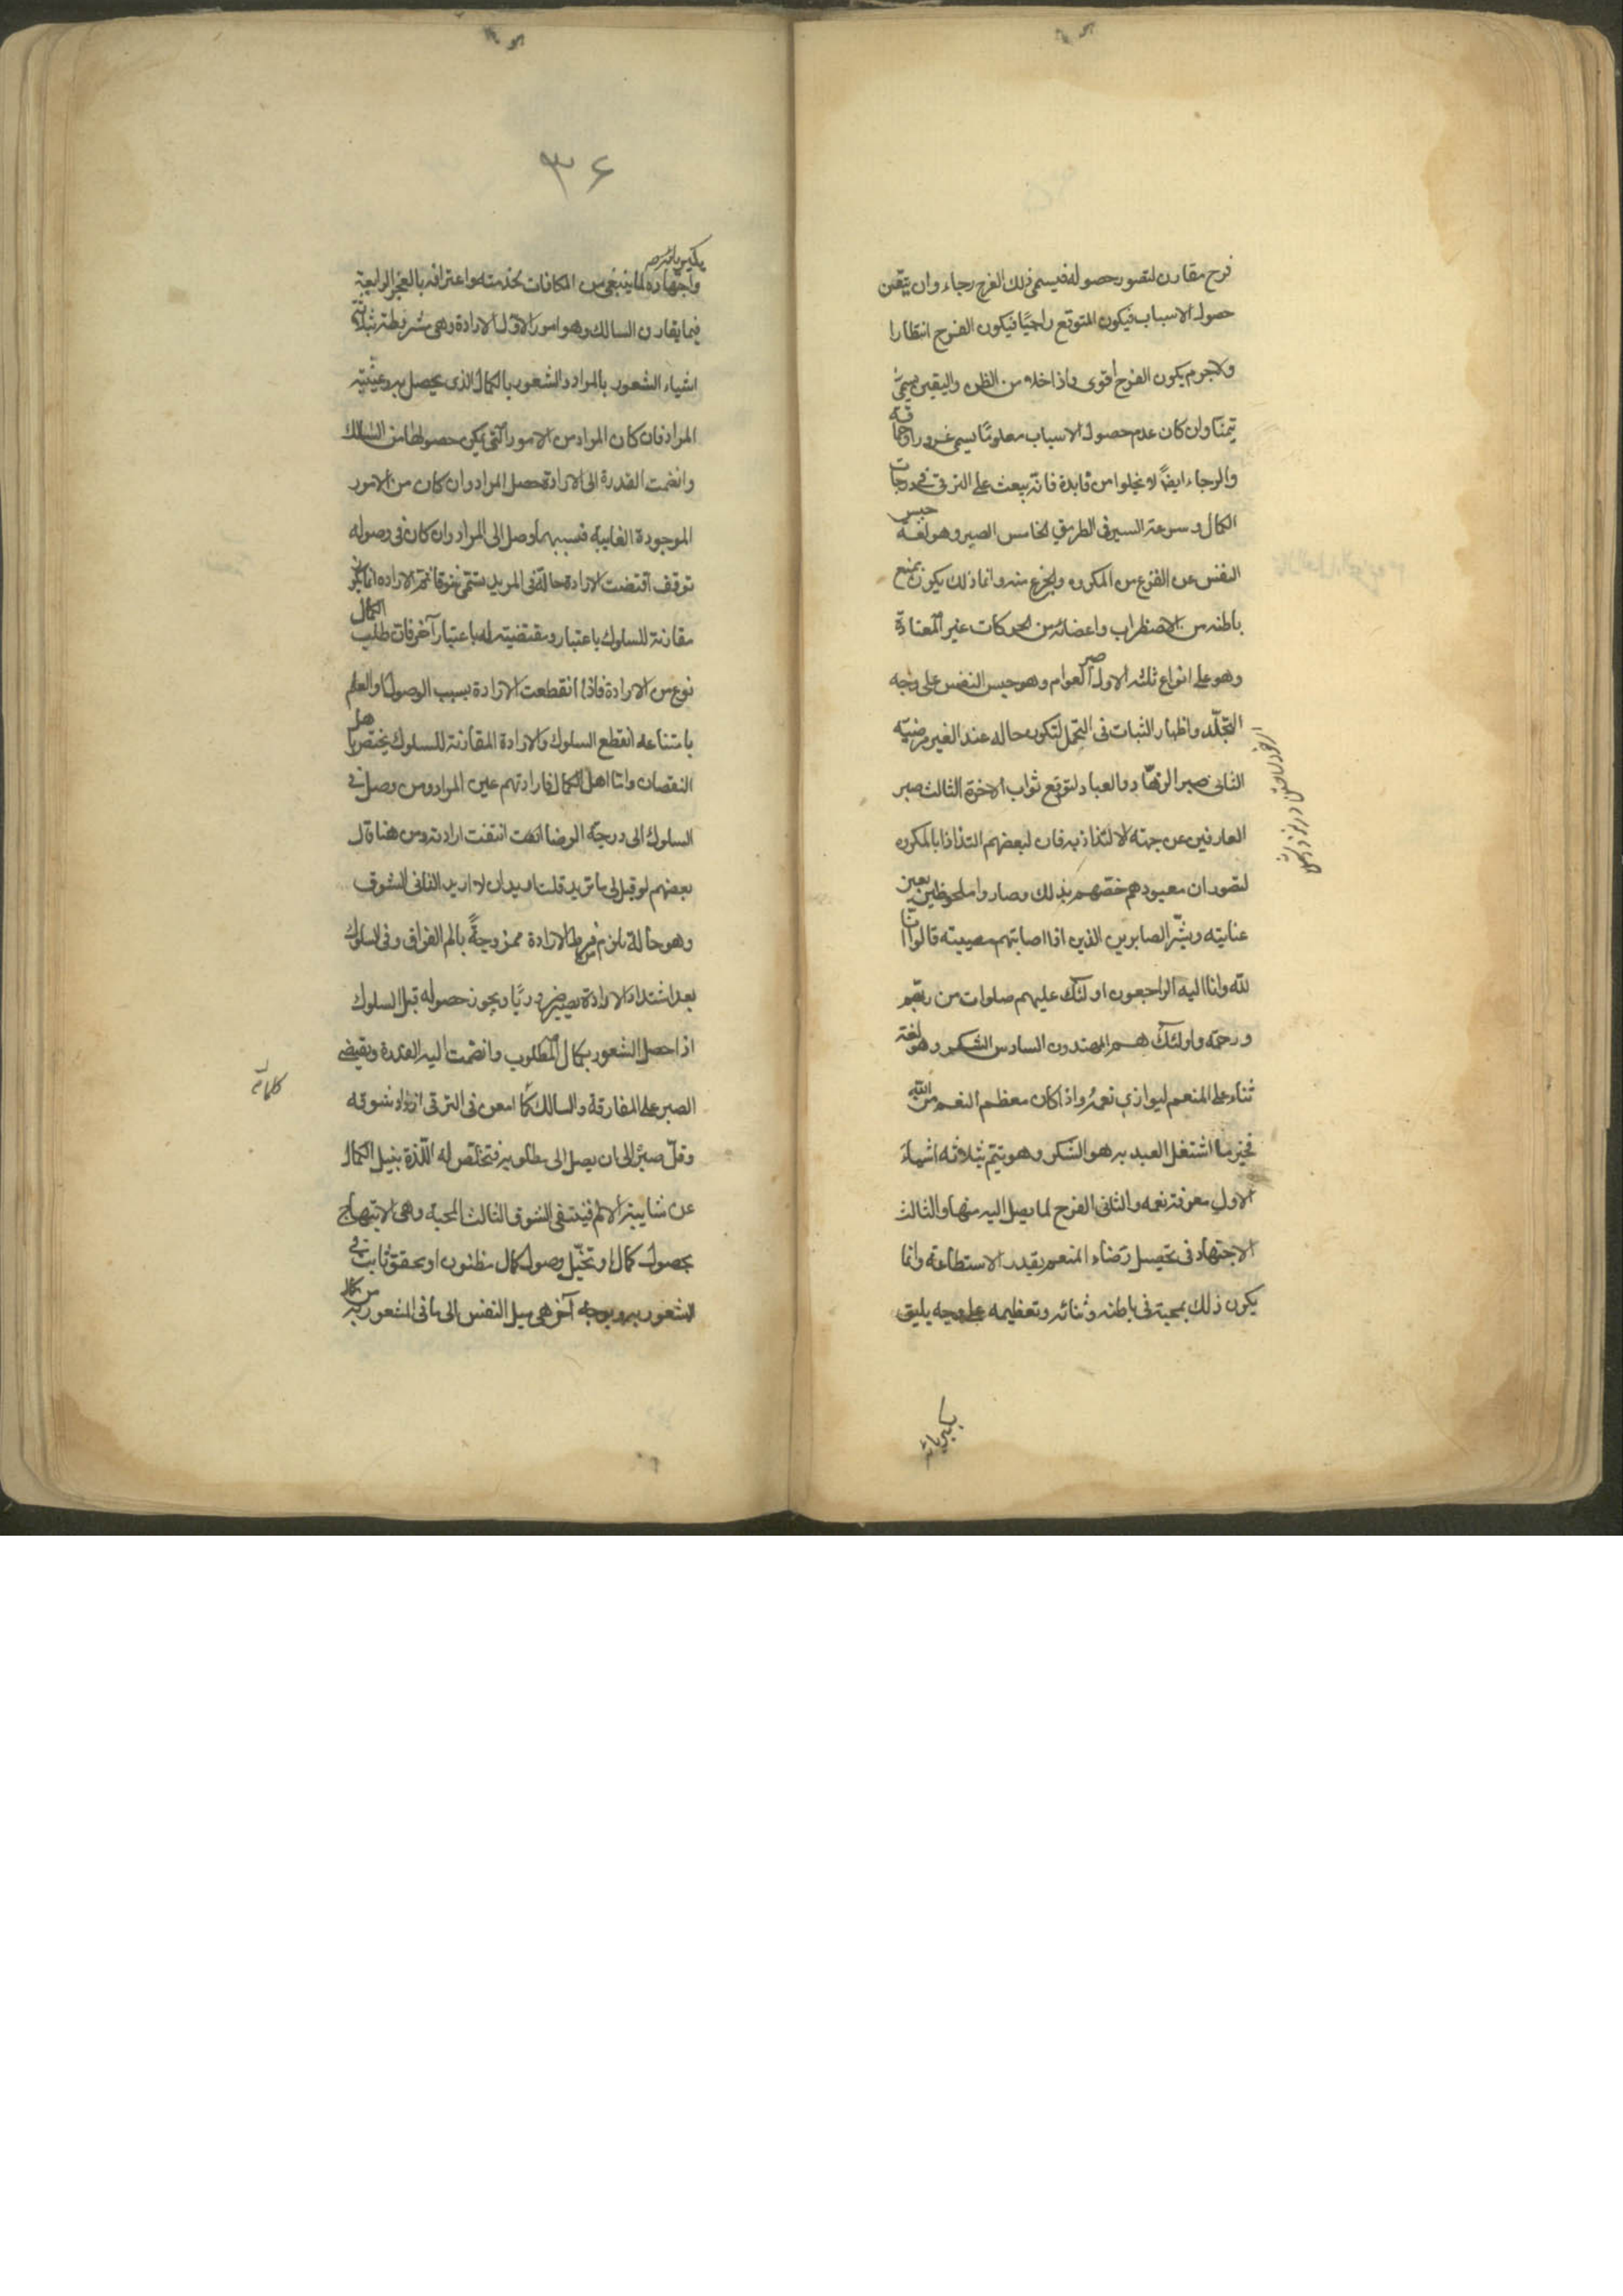 فرح مقارن لتصور حصوله فيسمى ذلك الفرح رجاء وان تيقن
حصول الاسباب فيكون المتوقع راجيًا فيكون الفرح انتظارا
ولاجرم يكون الفرح أقوى واذا خلا من الظن واليقين يسمى
تمنّا وان كان عدم حصول الاسباب معلومًا يسمى غرورا وحماقة
والرجاء ايضًا لا يخلوا من فايدة فانه يبعث على الترقى فى درجات
الكمال وسرعة السير فى الطريق الخامس الصبر وهو لغة حبس
النفس عن الفزع من المكروه والجزع منه وانما ذلك يكون بمنع
باطنه من الاضطراب واعضائه من الحركات غير المعتادة
وهو على انواع ثلثه الاول صبر العوام وهو حبس النفس على وجه
التجلّد واظهار الثبات فى التحمل لتكون حاله عند الغير مرضيّه
الثانى صبر الزهّاد والعباد لتوقع ثواب الاخرة الثالث صبر
العارفين عن جهته الالتذاذ به فان لبعضهم التذاذا بالمكروه
لتصور ان معبودهم خصّهم بذلك وصاروا ملحوظين بعين
عنايته وبشّر الصابرين الذين اذا اصابتهم مصيبته قالوا انّا
لله وانا اليه الراجعون اولئك عليهم صلوات من ربّهم
ورحمة واولئك هم المهتدون السادس الشكر وهو لغة
ثناء على المنعم ليوازي نعمه واذا كان معظم النعم من الله
فخير ما اشتغل العبد به هو الشكر وهو يتمّ بثلاثه اشياء
الاول معرفة نعمه والثانى الفرح لما يصل اليه منها والثالث
الاجتهاد فى تحصيل رضاء المنعم بقدر الاستطاعة وانما
يكون ذلك بمحبة فى باطنه وثنائه وتعظيمه على وجه يليق
بكبريائه
۳۶
بكبريائه
واجتهاده لما ينبغى من المكافات بخدمته واعترافه بالعجز الرابعة
فيما يقارن السالك وهو امور الاوّل الارادة وهى مشروطة بثلاثة
اشياء الشعور بالمراد والشعور بالكمال الذى يحصل به وغيبة
المراد فان كان المراد من الامور التى يمكن حصولها من السالك
وانضمت القدرة الى الارادة حصل المراد وان كان من الامور
الموجودة الغايبة فبسببهما وصل الى المراد وان كان فى وصوله
توقف اقتضت الارادة حالة فى المريد يسمى شوقا ثم الارادة انما يكون
مقارنة للسلوك باعتبار ومقتضيته له باعتبار آخر فان طلب الكمال
نوع من الارادة فاذا انقطعت الارادة بسبب الوصول او العلم
بامتناعه انقطع السلوك والارادة المقارنة للسلوك يختص باهل
النقصان وامّا اهل الكمال فارادتهم عين المراد ومن وصل فى
السلوك الى درجة الرضا انتفت ارادته ومن هنا قال
بعضهم لو قيل لى ما تريد قلت اريد ان لا اريد الثانى الشوق
وهو حالة يلزم من فرط الارادة ممزوجةً بالم الفراق وفى السلوك
بعد اشتداد الارادة يصير ضروريًا ويجوز حصوله قبل السلوك
اذا حصل الشعور بكمال المطلوب وانضمت اليه القدرة ويقتضى
الصبر على المفارقة والسالك كلّما امعن فى الترقى ازداد شوقه
وقلّ صبره الى ان يصل الى مطلوبه فتخلّص له اللّذة بنيل الكمال
عن شايبة الالم فينتفى الشوق الثالث المحبة وهى الابتهاج
بحصول كمال او تخيّل وصول كمال مظنون او محقق ثابت فى
المشعور به وبوجه آخر هى ميل النفس الى ما فى الشعور به من كمال